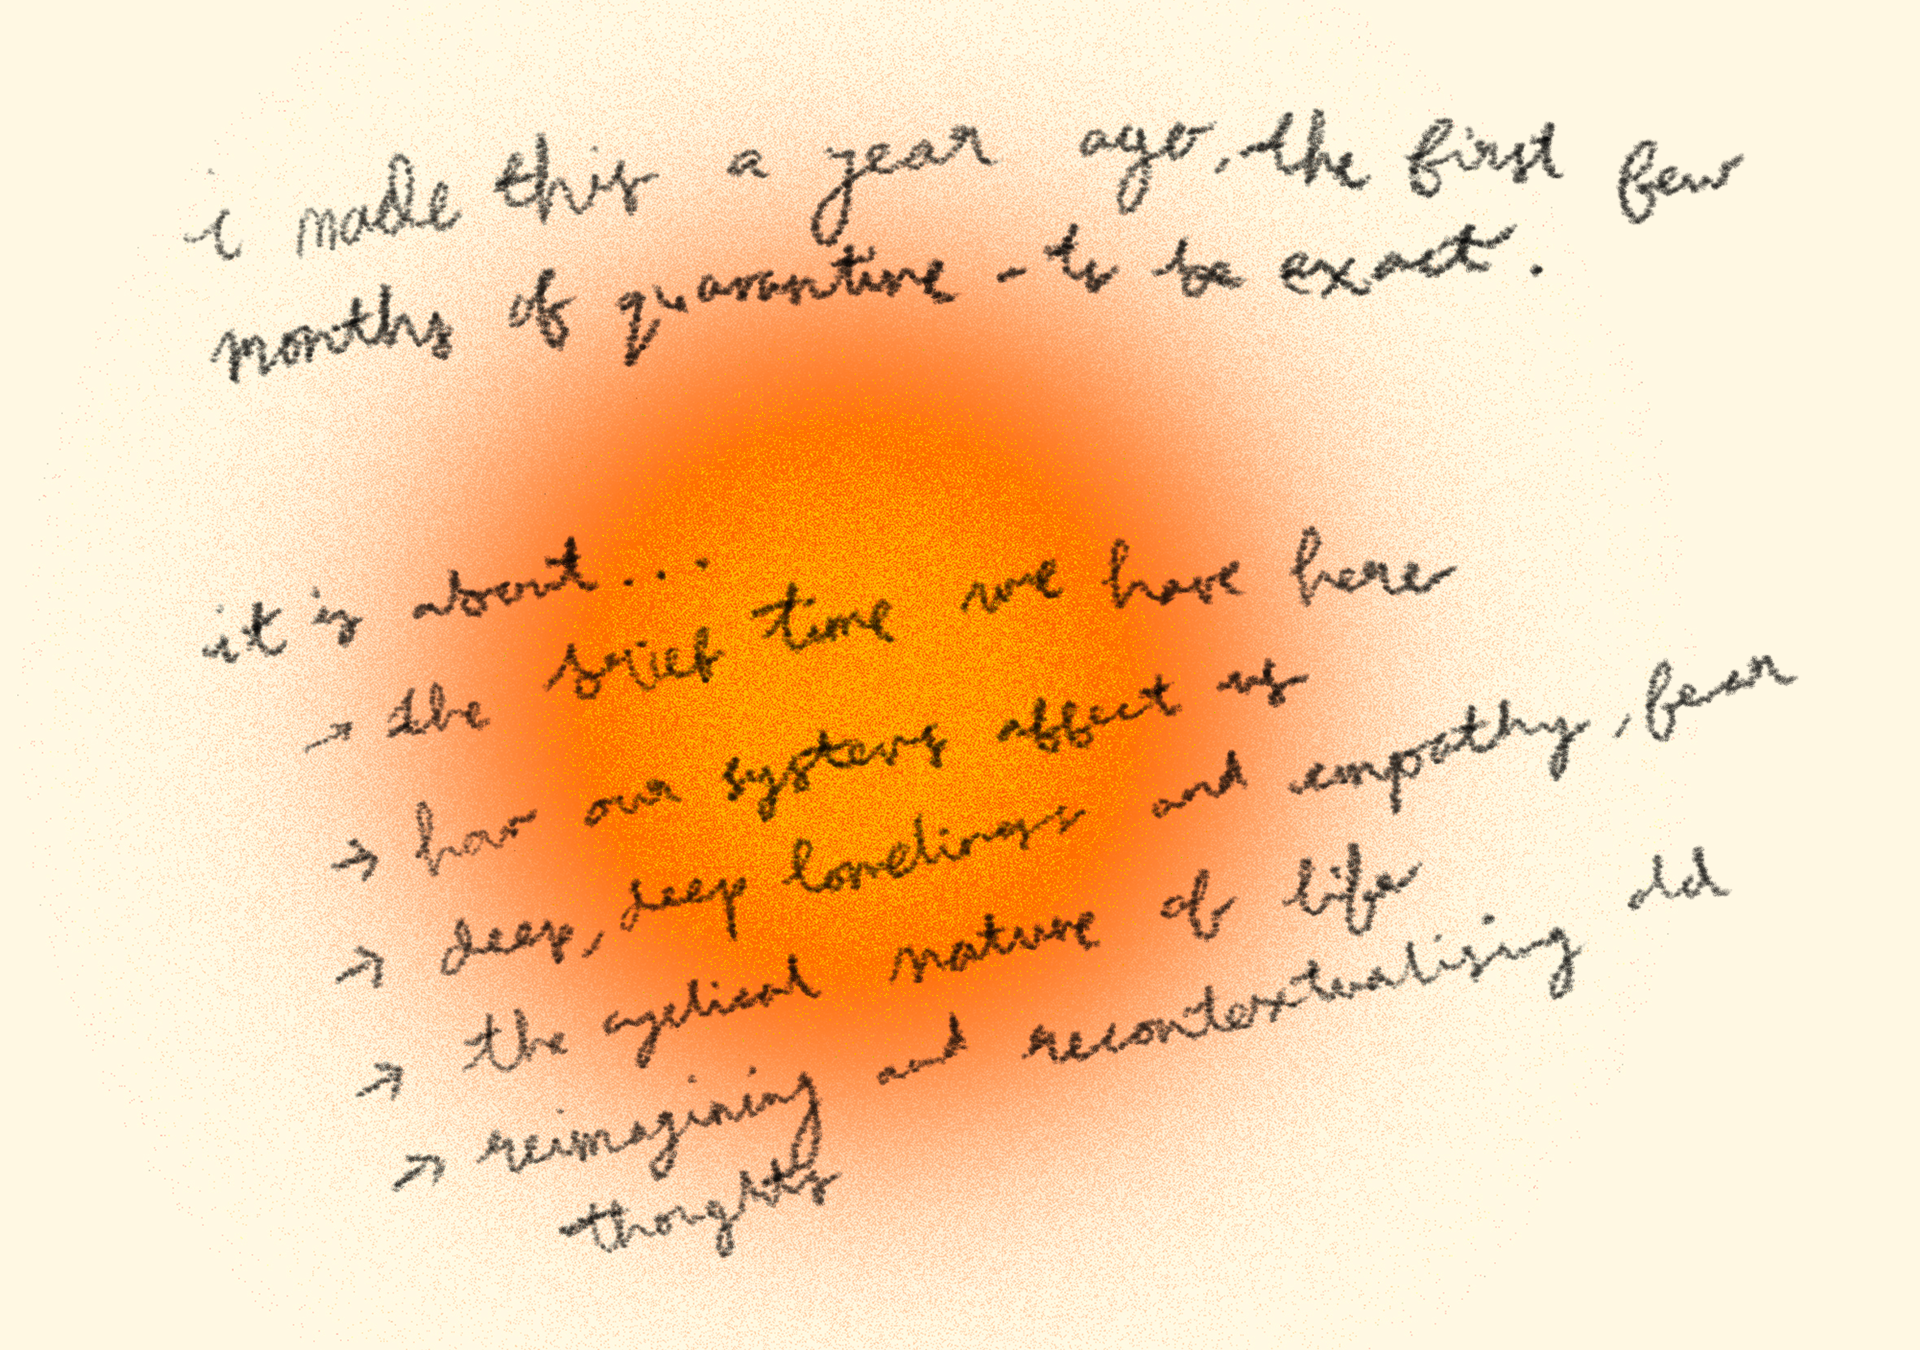 i made this a year ago, the first few
months of quarantine - to be exact.
it is about...
→ the brief time we have here
→ how our systems affect us
→ deep, deep loneliness and empathy, fear
→ the cyclical nature of life
→ reimagining and recontextualising old
thoughts